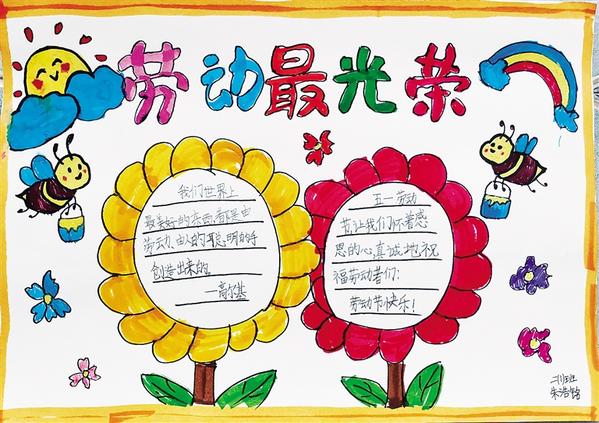 劳动最光荣
我们世界上
最美好的东西都是由
劳动、由人的聪明的手
创造出来的。
——高尔基
五一劳动
节,让我们怀着感
恩的心,真诚地祝
福劳动者们:
劳动节快乐!
二(1)班
朱浩